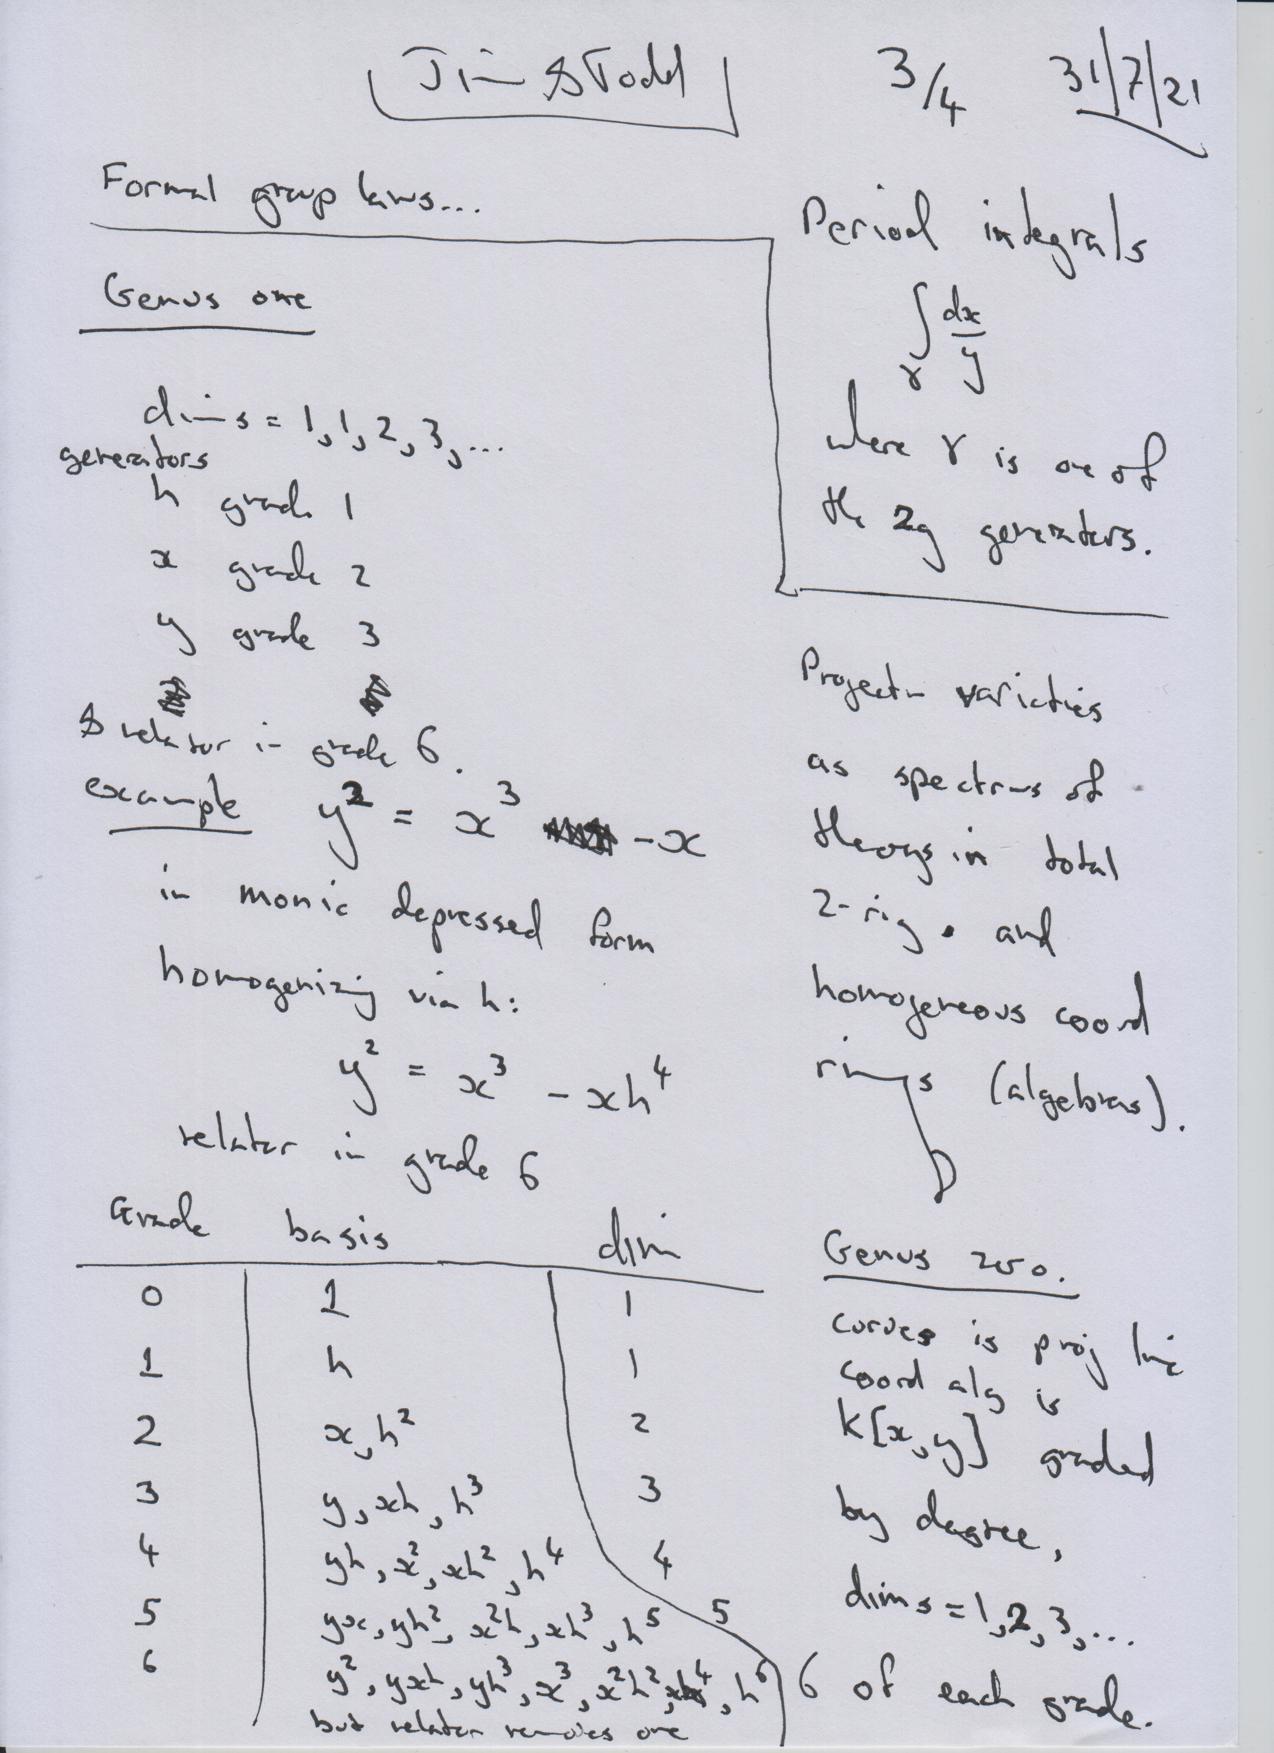 Jim & Todd
3/4
31/7/21
Formal group laws...
Genus one
dims = 1, 1, 2, 3, ...
generators
h grade 1
x grade 2
y grade 3
& relator in grade 6.
example y² = x³ - x
in monic depressed form
homogenizing via h:
y² = x³ - xh⁴
relator in grade 6
Grade basis dim
0 1 1
1 h 1
2 x, h² 2
3 y, xh, h³ 3
4 yh, x², xh², h⁴ 4
5 yx, yh², x²h, xh³, h⁵ 5
6 y², yxh, yh³, x³, x²h², xh⁴, h⁶ 6
but relator removes one
Period integrals
∫γ dx/y
where γ is one of
the 2g generators.
Projectn varieties
as spectrums of
theorys in total
2-rig. and
homogeneous coord
rings (algebras).
Genus zero.
curves is proj line
coord alg is
k[x,y] graded
by degree,
dims = 1, 2, 3, ...
of each grade.